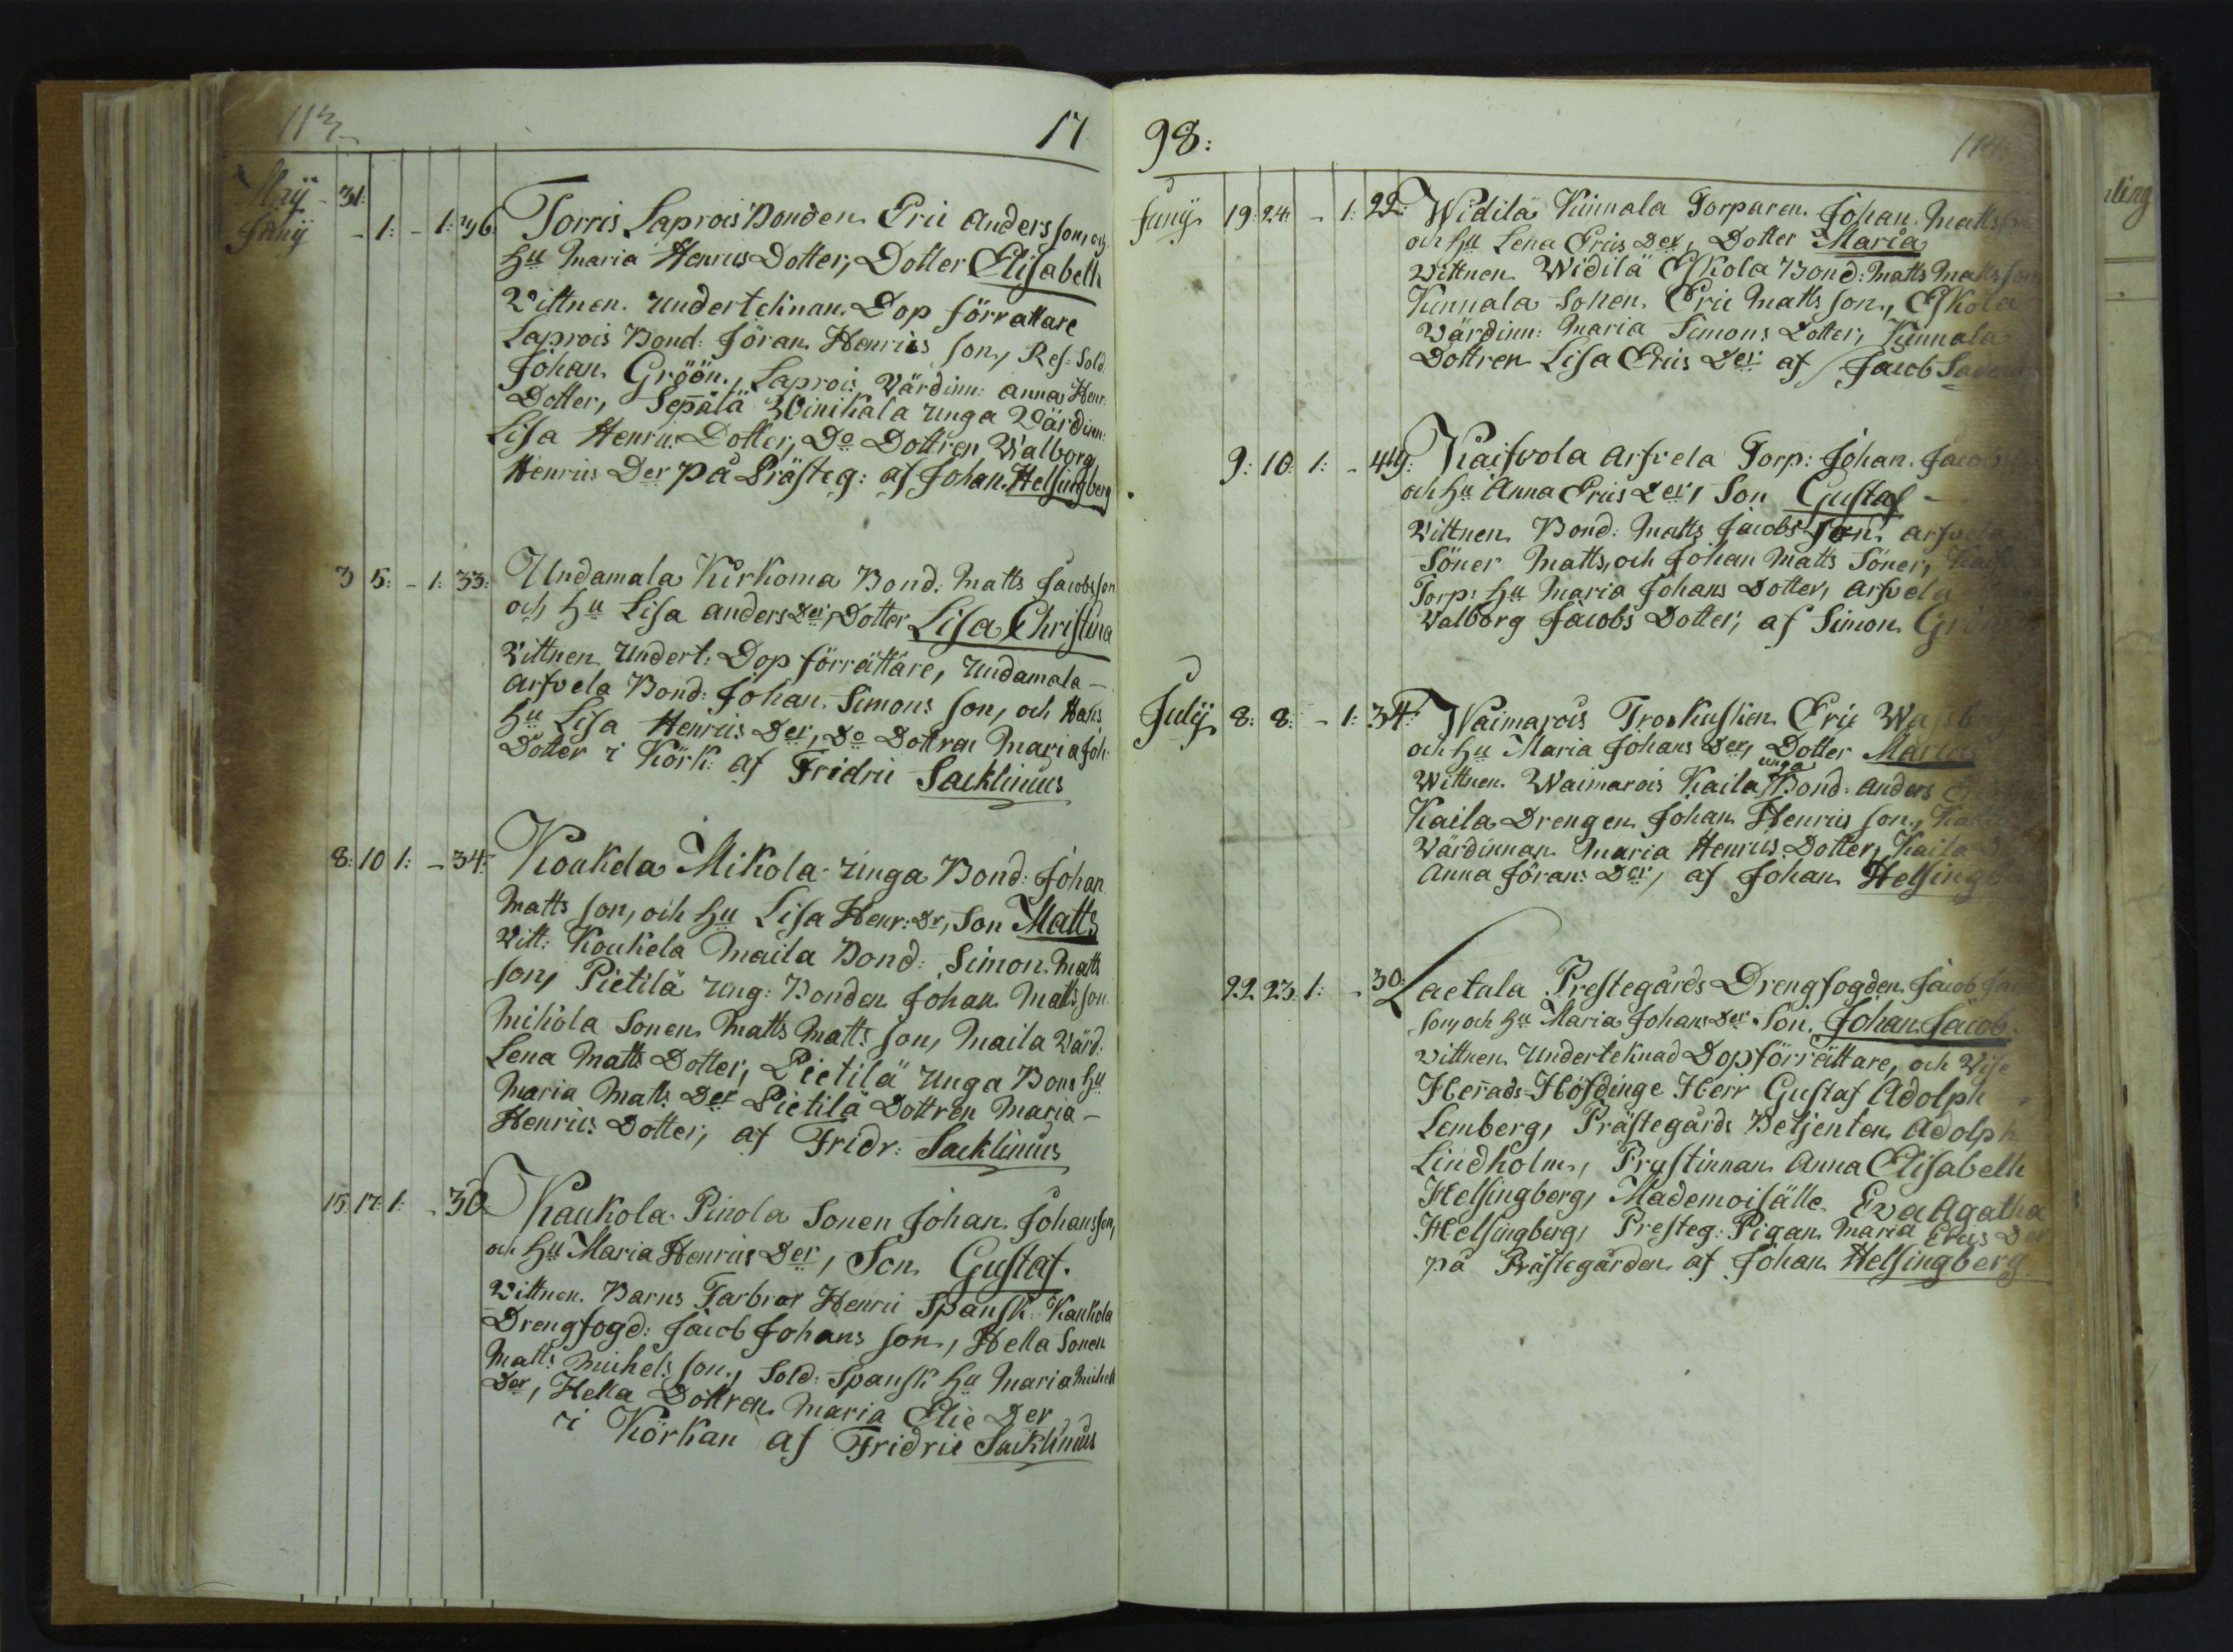 113
17
Maij 31:
Junij - 1: - 1: 36. Torris Laprois Bonden Eric Anders son, och
Hu Maria Henrics Dotter, Dotter Elisabeth
Vittnen. Underteknan. Dop förrättare
Laprois Bond: Jöran Henrics son, Res: Sold.
Johan Gröön, Laprois Värdinn: Anna Henr:
Dotter, Seppälä Winikala Unga Wärdinn:
Lisa Henrics Dotter, Do Dottren Walborg
Henrics Der på Prästeg: af Johan Helsingberg
3 5: - 1: 33: Undamala Kirkoma Bond: Matts Jacobs son
och Hu Lisa Anders Der, Dotter Lisa Christina
Vittnen Undert: Dop förrättare, Undamala -
Arfvela Bond: Johan Simons son, och Hans
Hu Lisa Henrics Der, Do Dottren Maria Joh:
Dotter i Körk: af Fridric Sacklinius
8: 10 1: - 34: Koukela Mikola Unga Bond: Johan
Matts son, och Hu Lisa Henr: Dr, Son Matts
Vitt: Koukela Maila Bond: Simon Matts
son, Pietilä Ung: Bonden Johan Matts son
Mikola Sonen Matts Matts son, Maila Värd:
Lena Matts Dotter, Pietilä Unga Bons Hu
Maria Matts Der Pietilä Dottren Maria -
Henrics Dotter, af Fridr: Sacklinius
15 17: 1: - 30 Kaukola Pinola Sonen Johan Johansson,
och Hu Maria Henrics Der, Son Gustaf.
Vittnen. Barns Farbror Henric Spansk Kaukola
Drengfogd: Jacob Johans son, Hella Sonen
Matts Michels son, Sold: Spansk Hu Maria Michels
Der, Hella Dottren Maria Elie Der
i Körkan af Fridric Sacklinius
98:
114.
Junij 19: 24: - 1: 22: Widilä Kinnala Torparen Johan Matts
och Hu Lena Erics Der, Dotter Maria
Vittnen Widilä Eskola Bond: Matts Matts son
Kinnala Sonen Eric Matts son, Eskola
Wärdinn: Maria Simons Dotter, Kinnala
Dottren Lisa Erics Der af Jacob
9: 10: 1: - 44: Kaifvola Arfvela Torp: Johan Jacobs
och Hu Anna Erics Der, Son Gustaf -
Vittnen Bond: Matts Jacobs Son Arfvela
Söner Matts, och Johan Matts Söner,
Torp: Hu Maria Johans Dotter, Arfvela
Walborg Jacobs Dotter, af Simon
Julij 8: 8: - 1: 34: Waimarois Troskusken Eric
och Hu Maria Johans Der, Dotter Maria
Wittnen Waimarois Kaila unga Bond: Anders
Kaila Drengen Johan Henrics son,
Wärdinnan Maria Henrics Dotter, Kaila
Anna Jörans Der, af Johan Helsingb
22 23: 1: - 30: Laetala Prestegårds Drengfogden Jacob
son, och Hu Maria Johans Der Son. Johan Jacob
vittnen Underteknad Dopförrättare, och Vise
Herrads-Höfdinge Herr Gustaf Adolph
Lemberg, Prästegårds Betjenten Adolph
Lindholm, Prustinnan Anna Elisabeth
Helsingberg, Mademoisälle Eva Agatha
Helsingberg, Presteg: Pigan Maria Erics Der
på Prästegården af Johan Helsingberg